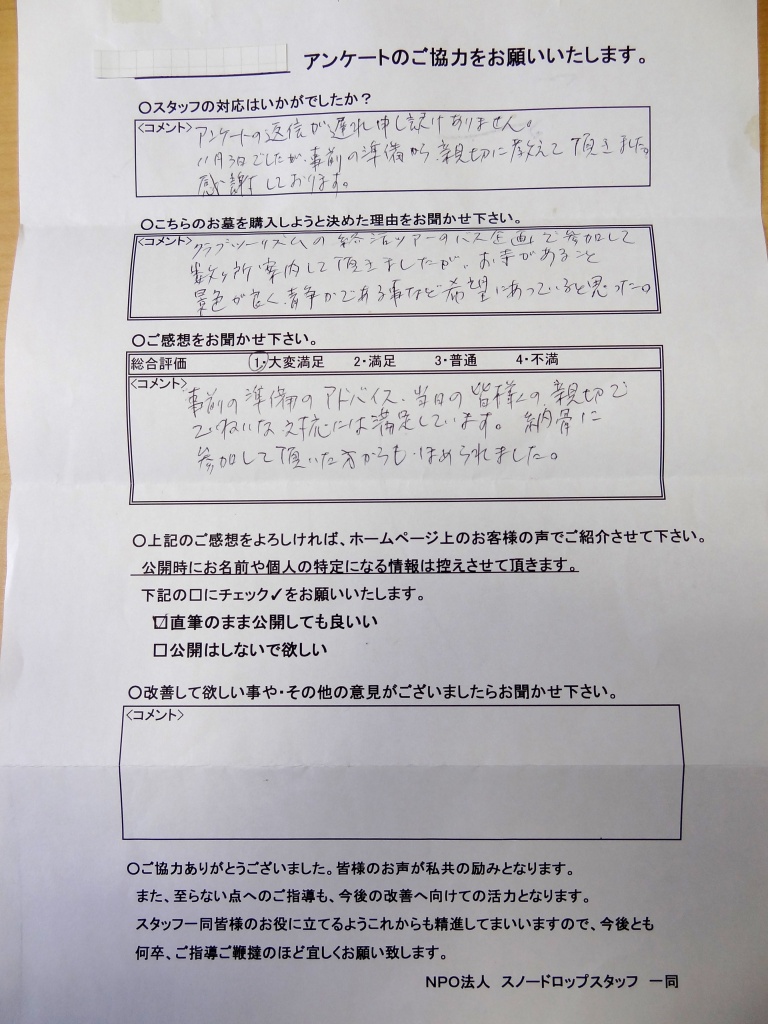 アンケートのご協力をお願いいたします。
○スタッフの対応はいかがでしたか？
<コメント>アンケートの返信が遅れ申し訳けありません。
11月3日でしたが、事前の準備から親切に教えて頂きました。
感謝しております。
○こちらのお墓を購入しようと決めた理由をお聞かせ下さい。
<コメント>クラブツーリズムの終活ツアーのバス企画で参加して
数ヶ所案内して頂きましたが、お寺があること
景色が良く、静かである事など希望にあっていると思った。
○ご感想をお聞かせ下さい。
総合評価 1・大変満足 2・満足 3・普通 4・不満
<コメント>事前の準備のアドバイス、当日の皆様の親切で
ていねいな対応には満足しています。納骨に
参加して頂いた方からもほめられました。
○上記のご感想をよろしければ、ホームページ上のお客様の声でご紹介させて下さい。
公開時にお名前や個人の特定になる情報は控えさせて頂きます。
下記の□にチェック✓をお願いいたします。
☑直筆のまま公開しても良いい
□公開はしないで欲しい
○改善して欲しい事や・その他の意見がございましたらお聞かせ下さい。
<コメント>
○ご協力ありがとうございました。皆様のお声が私共の励みとなります。
また、至らない点へのご指導も、今後の改善へ向けての活力となります。
スタッフ一同皆様のお役に立てるようこれからも精進してまいいますので、今後とも
何卒、ご指導ご鞭撻のほど宜しくお願い致します。
NPO法人 スノードロップスタッフ 一同